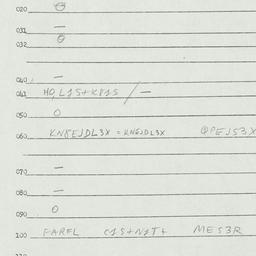 020 θ
031 —
032 θ
040 —
041 H0,L1S+K81S / —
050 O
060 KN8EJDL3X = KN6JDL3X QPEJS3X
070 —
080 —
090 O
100 FARFL C1S+N1T+ MES3R